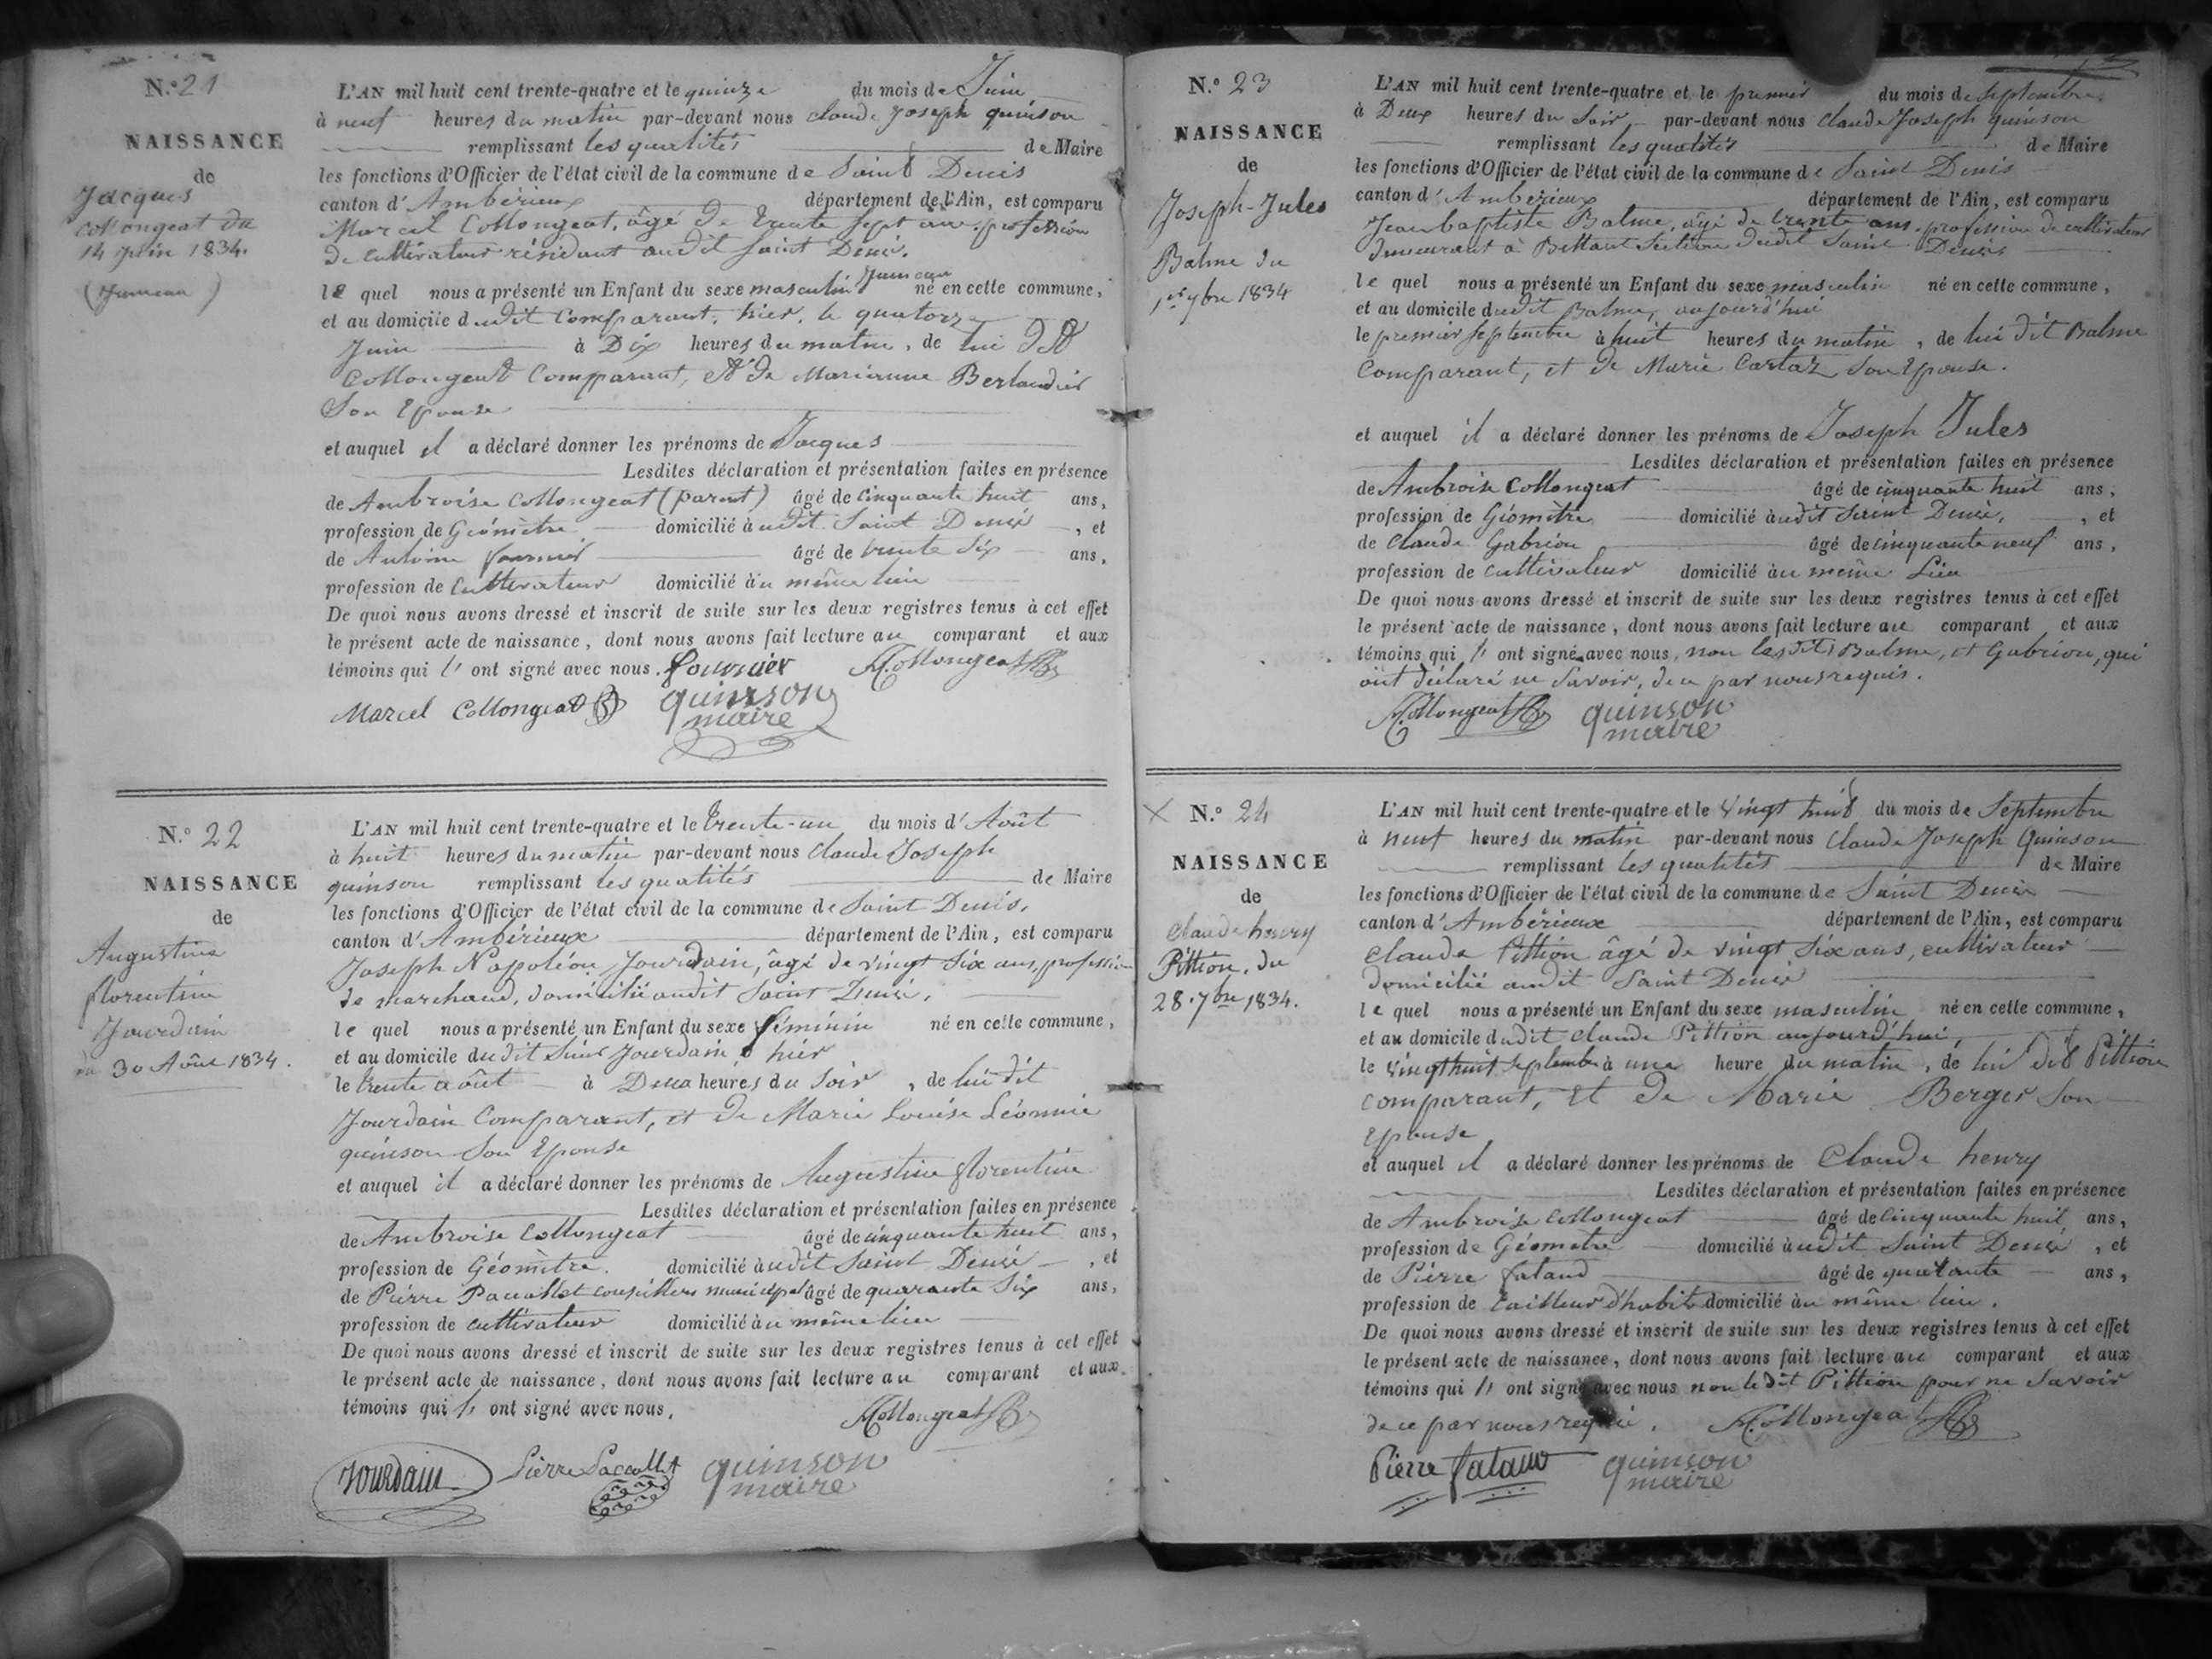 N.° 21
NAISSANCE
de
Jacques
Collongeat du
14 juin 1834.
(Jumeau)
L'AN mil huit cent trente-quatre et le quinze du mois de Juin
à neuf heures du matin par-devant nous Claude Joseph quinson
remplissant les qualités de Maire
les fonctions d'Officier de l'état civil de la commune de Saint Denis
canton d'Ambérieux département de l'Ain, est comparu
Marcel Collongeat, âgé de trente sept ans, profession
de cultivateur résidant audit Saint Denis.
le quel nous a présenté un Enfant du sexe masculin Jumeau né en cette commune,
et au domicile dudit Comparant, hier, le quatorze
Juin à Dix heures du matin, de lui dit
Collongeat Comparant, et de Marianne Berlandier
Son Epouse
et auquel il a déclaré donner les prénoms de Jacques
Lesdites déclaration et présentation faites en présence
de Ambroise Collongeat (parent) âgé de cinquante huit ans,
profession de Géomètre domicilié audit Saint Denis, et
de Antoine fournier âgé de trente Six ans,
profession de Cultivateur domicilié au même lieu
De quoi nous avons dressé et inscrit de suite sur les deux registres tenus à cet effet
le présent acte de naissance, dont nous avons fait lecture au comparant et aux
témoins qui l's ont signé avec nous. fournier A. Collongeat
Marcel Collongeat quinson
maire
N.° 22
NAISSANCE
de
Augustine
florentine
Jourdain
du 30 Août 1834.
L'AN mil huit cent trente-quatre et le trente-un du mois d'Août
à huit heures du matin par-devant nous Claude Joseph
quinson remplissant les qualités de Maire
les fonctions d'Officier de l'état civil de la commune de Saint Denis,
canton d'Ambérieux département de l'Ain, est comparu
Joseph Napoléon Jourdain, âgé de vingt Six ans, profession
de marchand, domicilié audit Saint Denis,
le quel nous a présenté un Enfant du sexe féminin né en cette commune,
et au domicile dudit Sieur Jourdain hier
le trente août à Deux heures du Soir, de lui dit
Jourdain Comparant, et de Marie Louise Léonnie
quinson Son Epouse
et auquel il a déclaré donner les prénoms de Augustine florentine
Lesdites déclaration et présentation faites en présence
de Ambroise Collongeat âgé de cinquante huit ans,
profession de Géomètre. domicilié audit Saint Denis, et
de Pierre Pacallet conseillers municipal âgé de quarante Six ans,
profession de cultivateur domicilié au même lieu
De quoi nous avons dressé et inscrit de suite sur les deux registres tenus à cet effet
le présent acte de naissance, dont nous avons fait lecture au comparant et aux
témoins qui l's ont signé avec nous, A. Collongeat
Jourdain Pierre Paccallet quinson
maire
N.° 23
NAISSANCE
de
Joseph-Jules
Balme du
1er 7bre 1834
L'AN mil huit cent trente-quatre et le premier du mois de Septembre,
à Deux heures du Soir, par-devant nous Claude Joseph quinson
remplissant les qualités de Maire
les fonctions d'Officier de l'état civil de la commune de Saint Denis
canton d'Ambérieux département de l'Ain, est comparu
Jean baptiste Balme, âgé de trente ans, profession de cultivateur
demeurant à Bettant Section dudit Saint Denis
le quel nous a présenté un Enfant du sexe masculin né en cette commune,
et au domicile dudit Balme, aujourd'hui
le premier Septembre à huit heures du matin, de lui dit Balme
Comparant, et de Marie Cartaz Son Epouse.
et auquel il a déclaré donner les prénoms de Joseph Jules
Lesdites déclaration et présentation faites en présence
de Ambroise Collongeat âgé de cinquante huit ans,
profession de Géomètre domicilié audit Saint Denis, et
de Claude Gabrion âgé de cinquante neuf ans,
profession de cultivateur domicilié au même Lieu
De quoi nous avons dressé et inscrit de suite sur les deux registres tenus à cet effet
le présent acte de naissance, dont nous avons fait lecture au comparant et aux
témoins qui l's ont signé avec nous, non lesdits Balme, et Gabrion, qui
ont déclaré ne Savoir, de ce par nous requis.
A. Collongeat quinson
maire
N.° 24
NAISSANCE
de
Claude henry
Pittion, du
28. 7bre 1834.
L'AN mil huit cent trente-quatre et le Vingt huit du mois de Septembre
à neuf heures du matin par-devant nous Claude Joseph Quinson
remplissant les qualités de Maire
les fonctions d'Officier de l'état civil de la commune de Saint Denis
canton d'Ambérieux département de l'Ain, est comparu
Claude Pittion âgé de vingt Six ans, cultivateur
domicilié audit Saint Denis
le quel nous a présenté un Enfant du sexe masculin né en cette commune,
et au domicile dudit Claude Pittion aujourd'hui,
le vingt huit Septembre à une heure du matin, de lui dit Pittion
comparant, et de Marie Berger Son
Epouse
et auquel il a déclaré donner les prénoms de Claude henry
Lesdites déclaration et présentation faites en présence
de Ambroise Collongeat âgé de cinquante huit ans,
profession de Géomètre domicilié audit Saint Denis, et
de Pierre fataud âgé de quarante ans,
profession de tailleur d'habits domicilié au même lieu.
De quoi nous avons dressé et inscrit de suite sur les deux registres tenus à cet effet
le présent acte de naissance, dont nous avons fait lecture au comparant et aux
témoins qui l's ont signé avec nous non ledit Pittion pour ne Savoir
de ce par nous requis. A. Collongeat
Pierre fataud quinson
maire